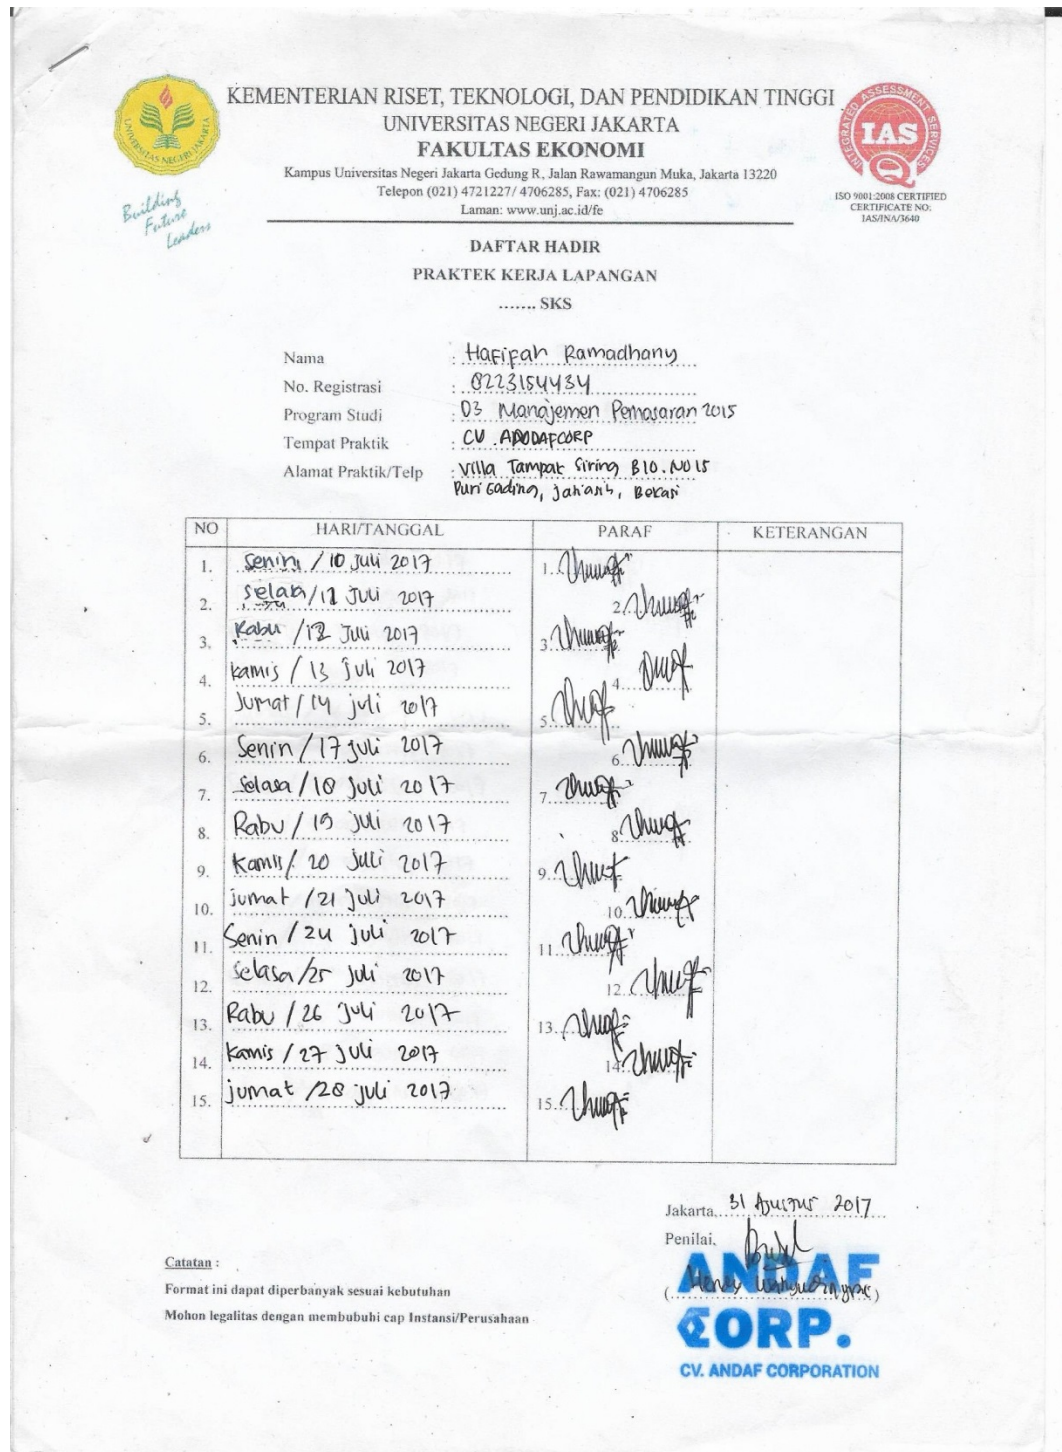 KEMENTERIAN RISET, TEKNOLOGI, DAN PENDIDIKAN TINGGI
UNIVERSITAS NEGERI JAKARTA
FAKULTAS EKONOMI
Kampus Universitas Negeri Jakarta Gedung R, Jalan Rawamangun Muka, Jakarta 13220
Telepon (021) 4721227/ 4706285, Fax: (021) 4706285
Laman: www.unj.ac.id/fe
UNIVERSITAS NEGERI JAKARTA
Building
Future
Leaders
INTEGRATED ASSESSMENT SERVICES
IAS
Q
ISO 9001:2008 CERTIFIED
CERTIFICATE NO:
IAS/INA/3640
DAFTAR HADIR
PRAKTEK KERJA LAPANGAN
....... SKS
Nama : Hafifah Ramadhany
No. Registrasi : 8223154434
Program Studi : D3 Manajemen Pemasaran 2015
Tempat Praktik : CV.
Alamat Praktik/Telp : Villa Tampak Siring B10. NO 15
Puri Gading, Bekasi
NO HARI/TANGGAL PARAF KETERANGAN
1. Senin / 10 Juli 2017 1.
2. Selasa / 11 Juli 2017 2.
3. Rabu / 12 Juli 2017 3.
4. Kamis / 13 Juli 2017 4.
5. Jumat / 14 Juli 2017 5.
6. Senin / 17 Juli 2017 6.
7. Selasa / 18 Juli 2017 7.
8. Rabu / 19 Juli 2017 8.
9. Kamis / 20 Juli 2017 9.
10. jumat / 21 Juli 2017 10.
11. Senin / 24 Juli 2017 11.
12. Selasa / 25 Juli 2017 12.
13. Rabu / 26 Juli 2017 13.
14. Kamis / 27 Juli 2017 14.
15. jumat / 28 juli 2017 15.
Jakarta, 31 Agustus 2017
Penilai,
ANDAF
CORP.
CV. ANDAF CORPORATION
Catatan :
Format ini dapat diperbanyak sesuai kebutuhan
Mohon legalitas dengan membubuhi cap Instansi/Perusahaan